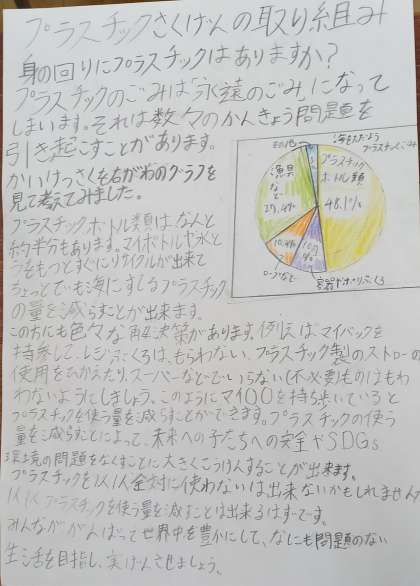 プラスチックさくげんの取り組み
身の回りにプラスチックはありますか?
プラスチックのごみは「永遠のごみ」になって
しまいます。それは数々のかんきょう問題を
引き起こすことがあります。
かいけつさくを右がわのグラフを
見て考えてみました。
プラスチックボトル類は、なんと
約半分もあります。マイボトルや水と
うをもつとすぐにリサイクルが出来て
ちょっとでも海にすてるプラスチック
の量を減らすことが出来ます。
その他
海をただよう
プラスチックごみ
プラスチック
ボトル類
48.1%
漁具
など
10.4%
ロープなど
容器やポリぶくろ
この方にも色々な解決策があります。例えばマイバックを
持参して、レジぶくろは、もらわない。プラスチック製のストローの
使用をひかえたり、スーパーなどでいらない(不必要)ものはもわ
わないようにしましょう。このようにマイ〇〇を持ち歩いていると
プラスチックを使う量を減らすことができます。プラスチックの使う
量を減らすことによって、未来への子たちへの安全やSDGs
環境の問題をなくすことに大きくこうけんすることが出来ます。
プラスチックを以人全対に使わないは出来ないかもしれませんが
プラスチックを使う量を減すことは出来るはずです。
みんながんばって世界中を豊かにして、なにも問題のない
生活を目指し、実げんさせましょう。